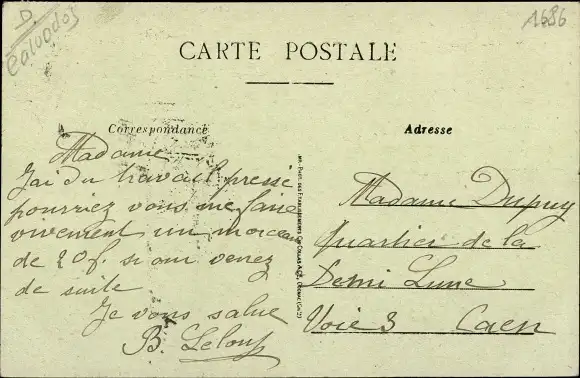 D.
Calvados
1686
CARTE POSTALE
Correspondance
Adresse
Madame
J'ai du travail pressé
pourriez vous me faire
vivement un morceau
de 20f. si oui venez
de suite
Je vous salue
B. Leloup
Madame Dupuy
Quartier de la
Demi Lune
Voie 3 Caen